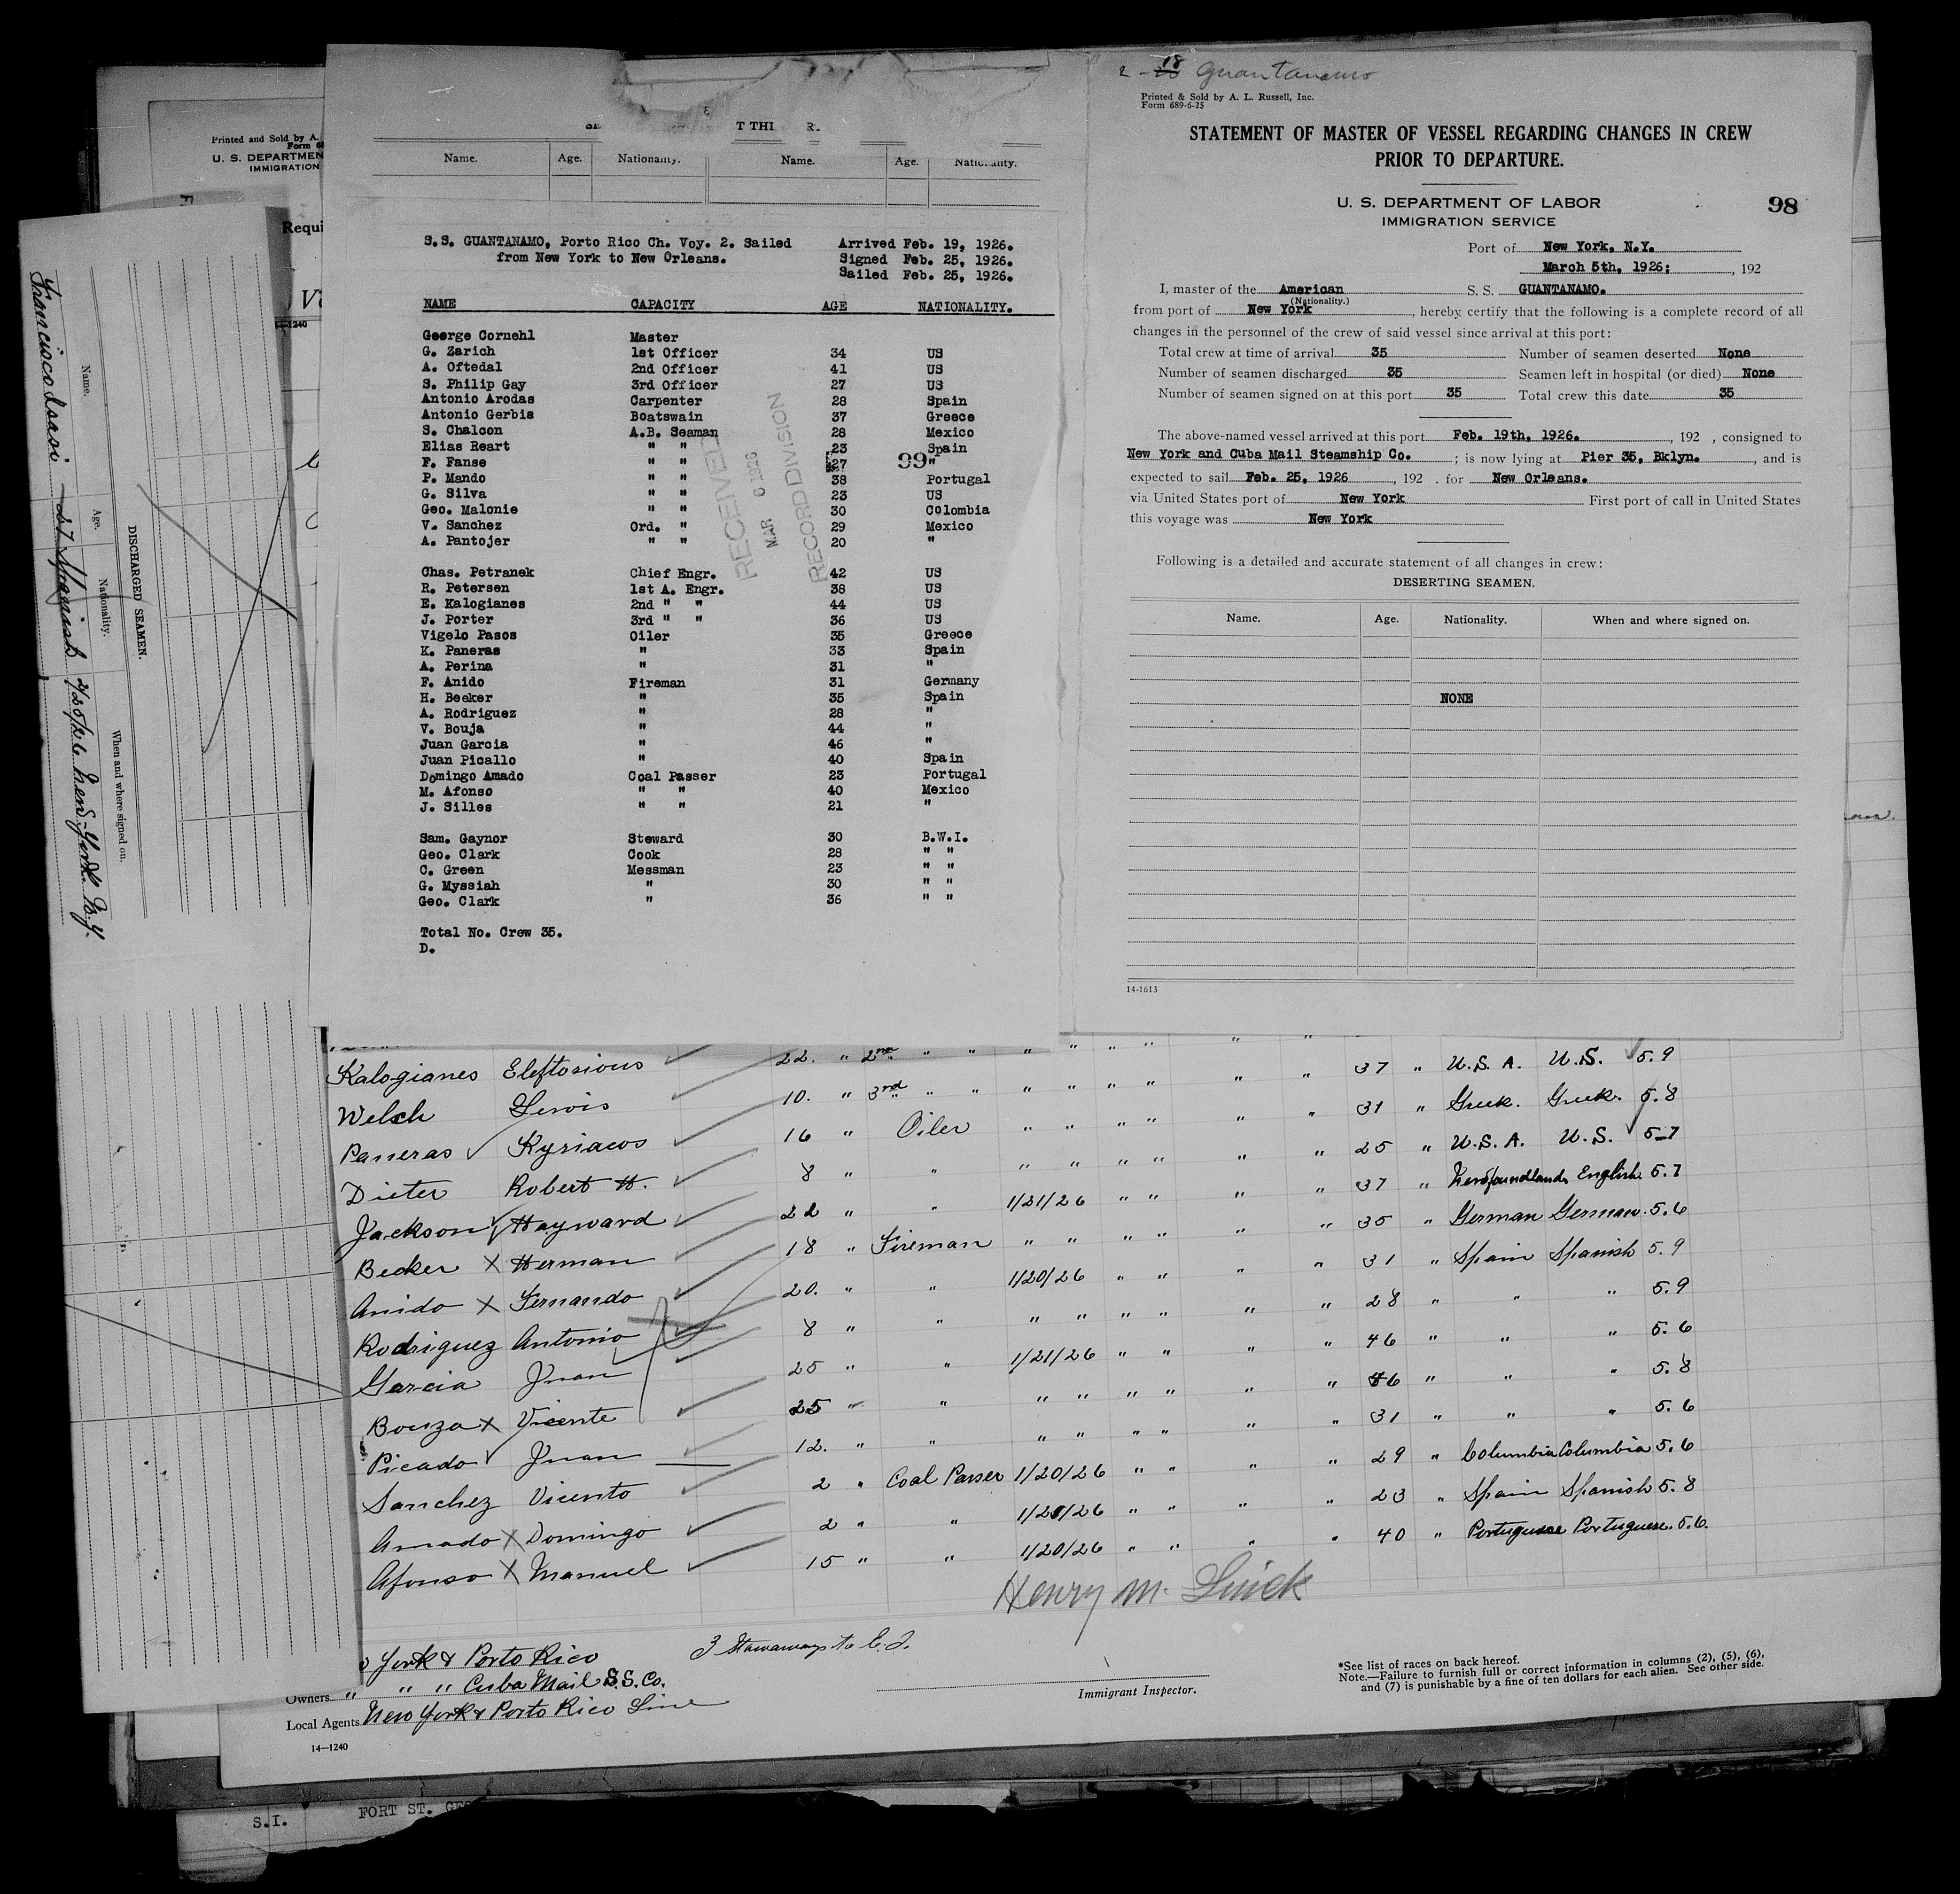 Printed and Sold by A.
Form 68
U. S. DEPARTMEN
IMMIGRATION
Requi
-1240
Name.
Age.
Nationality.
When and where signed on.
DISCHARGED SEAMEN.
27 Spanish 2/25/26 New York N.Y.
T THI
Name. Age. Nationality. Name. Age. Nationality.
S.S. GUANTANAMO, Porto Rico Ch. Voy. 2. Sailed Arrived Feb. 19, 1926.
from New York to New Orleans. Signed Feb. 25, 1926.
Sailed Feb. 25, 1926.
NAME CAPACITY AGE NATIONALITY.
George Cornehl Master
G. Zarich 1st Officer 34 US
A. Oftedal 2nd Officer 41 US
S. Philip Gay 3rd Officer 27 US
Antonio Arodas Carpenter 28 Spain
Antonio Gerbis Boatswain 37 Greece
S. Chalcon A.B. Seaman 28 Mexico
Elias Reart " " 23 Spain
F. Fanse " " 27 "
99
P. Mando " " 38 Portugal
G. Silva " " 23 US
Geo. Malonie " " 30 Colombia
V. Sanchez Ord. " 29 Mexico
A. Pantojer " " 20 "
RECEIVED
MAR 6 1926
RECORD DIVISION
Chas. Petranek Chief Engr. 42 US
R. Petersen 1st A. Engr. 38 US
E. Kalogianes 2nd " " 44 US
J. Porter 3rd " " 36 US
Vigelo Pasos Oiler 35 Greece
K. Paneras " 33 Spain
A. Perina " 31 "
F. Anido Fireman 31 Germany
H. Becker " 35 Spain
A. Rodriguez " 28 "
V. Bouja " 44 "
Juan Garcia " 46 "
Juan Picallo " 40 Spain
Domingo Amado Coal Passer 23 Portugal
M. Afonso " " 40 Mexico
J. Silles " " 21 "
Sam. Gaynor Steward 30 B.W.I.
Geo. Clark Cook 28 " "
C. Green Messman 23 " "
G. Myssiah " 30 " "
Geo. Clark " 36 " "
Total No. Crew 35.
D.
18 Guantanamo
Printed & Sold by A. L. Russell, Inc.
Form 689-6-25
STATEMENT OF MASTER OF VESSEL REGARDING CHANGES IN CREW
PRIOR TO DEPARTURE.
U. S. DEPARTMENT OF LABOR
IMMIGRATION SERVICE
98
Port of New York, N.Y.
March 5th, 1926; , 192
I, master of the American S. S. GUANTANAMO.
(Nationality.)
from port of New York, hereby certify that the following is a complete record of all
changes in the personnel of the crew of said vessel since arrival at this port:
Total crew at time of arrival 35 Number of seamen deserted None
Number of seamen discharged 35 Seamen left in hospital (or died) None
Number of seamen signed on at this port 35 Total crew this date 35
The above-named vessel arrived at this port Feb. 19th, 1926. , 192 , consigned to
New York and Cuba Mail Steamship Co. ; is now lying at Pier 35, Bklyn. , and is
expected to sail Feb. 25, 1926 , 192 . for New Orleans.
via United States port of New York First port of call in United States
this voyage was New York
Following is a detailed and accurate statement of all changes in crew:
DESERTING SEAMEN.
Name. Age. Nationality. When and where signed on.
NONE
14-1613
Kalogianes Eleftosious 22. " 2nd " " " " " " " " 37 " U.S.A. U.S. 5.9
Welsh Lewis 10. " 3rd " " " " " " " " 31 " Greek. Greek. 5.8
Paneras Kyriacos 16 " Oiler " " " " " " 25 " U.S.A. U.S. 5.7
Dieter Robert H. 8 " " " " " " " " 37 " Newfoundland English 5.7
Jackson Hayward 22 " " 1/21/26 " " " " 35 " German German. 5.6
Becker X Herman 18 " Fireman " " " " " " 31 " Spain Spanish 5.9
Anido X Fernando 20. " " 1/20/26 " " " " 28 " " " 5.9
Rodriguez Antonio 8 " " " " " " " " 46 " " " 5.6
Garcia Juan 25 " " 1/21/26 " " " " 46 " " " 5.8
Bouza X Vicente 25 " " " " " " " " 31 " " " 5.6
Picado Juan 12. " " " " " " " " 29 " Columbia Columbia 5.6
Sanchez Vicento 2 " Coal Passer 1/20/26 " " " " 23 " Spain Spanish 5.8
Amado X Domingo 2 " " 1/21/26 " " " " 40 " Portuguese Portuguese. 5.6.
Afonso X Manuel 15 " " 1/20/26 " " " "
Henry M.
York & Porto Rico
3 Stowaways to
Owners " " " Cuba Mail S.S. Co.
Local Agents New York & Porto Rico Line
Immigrant Inspector.
14—1240
*See list of races on back hereof.
Note.—Failure to furnish full or correct information in columns (2), (5), (6),
and (7) is punishable by a fine of ten dollars for each alien. See other side.
S.I. FORT ST.